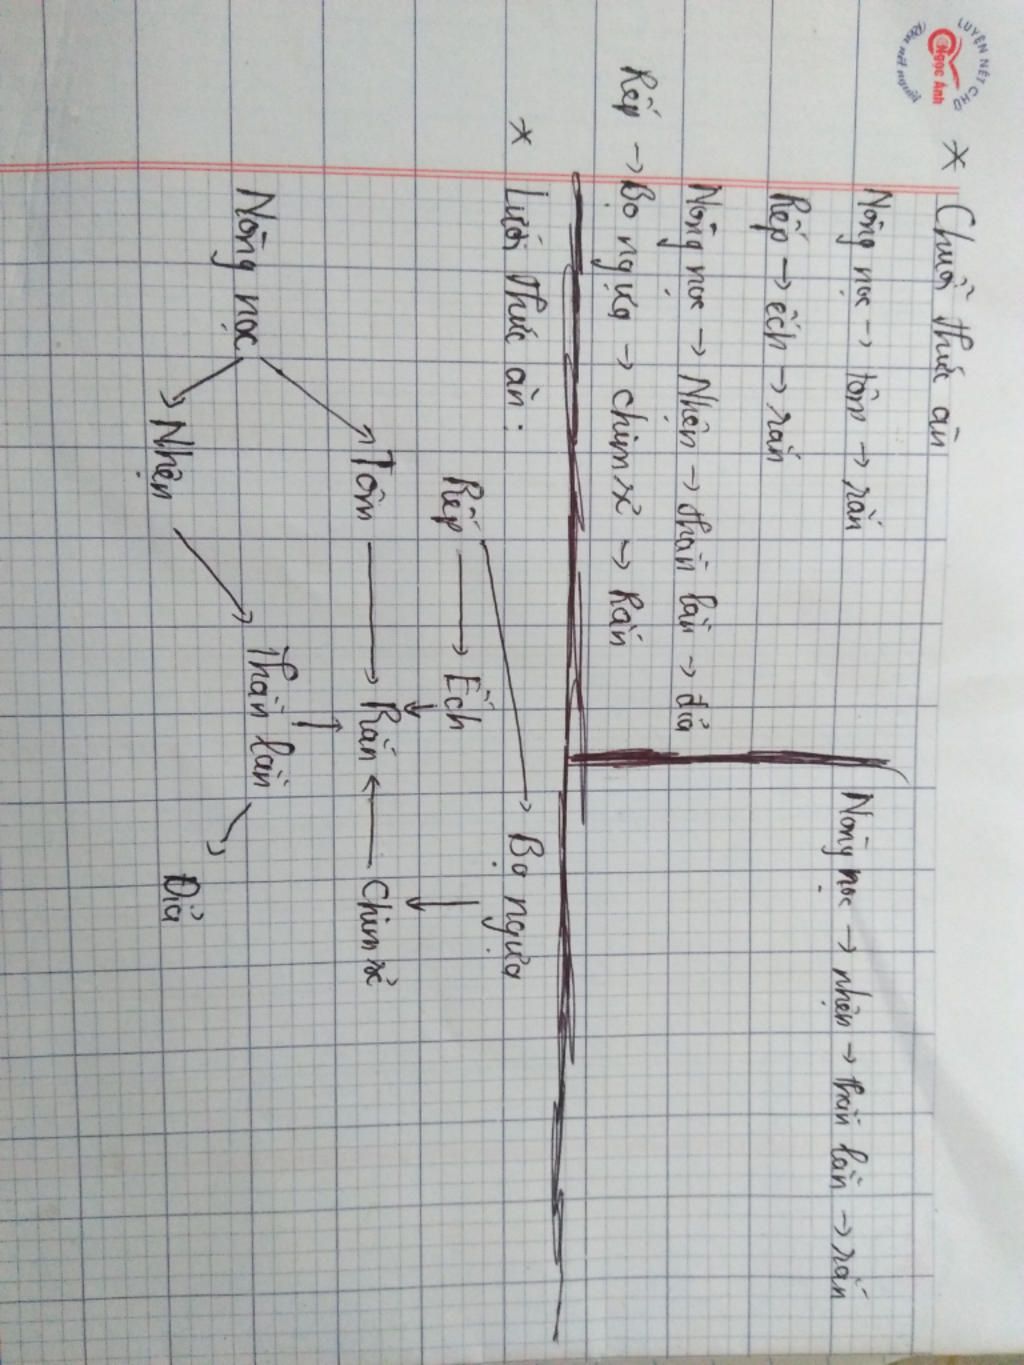 LUYỆN NÉT CHỮ
Ngọc Ánh
Rèn nét người
* Chuỗi thức ăn
Nòng nọc → tôm → rắn
Rếp → ếch → rắn
Nòng nọc → Nhện → thằn lằn → đỉa
Rếp → Bọ ngựa → chim sẻ → Rắn
Nòng nọc → nhện → thằn lằn → rắn
* Lưới thức ăn:
Rếp → Ếch
Bọ ngựa
Tôm → Rắn ← Chim sẻ
Nòng nọc
Thằn lằn
Nhện
Đỉa